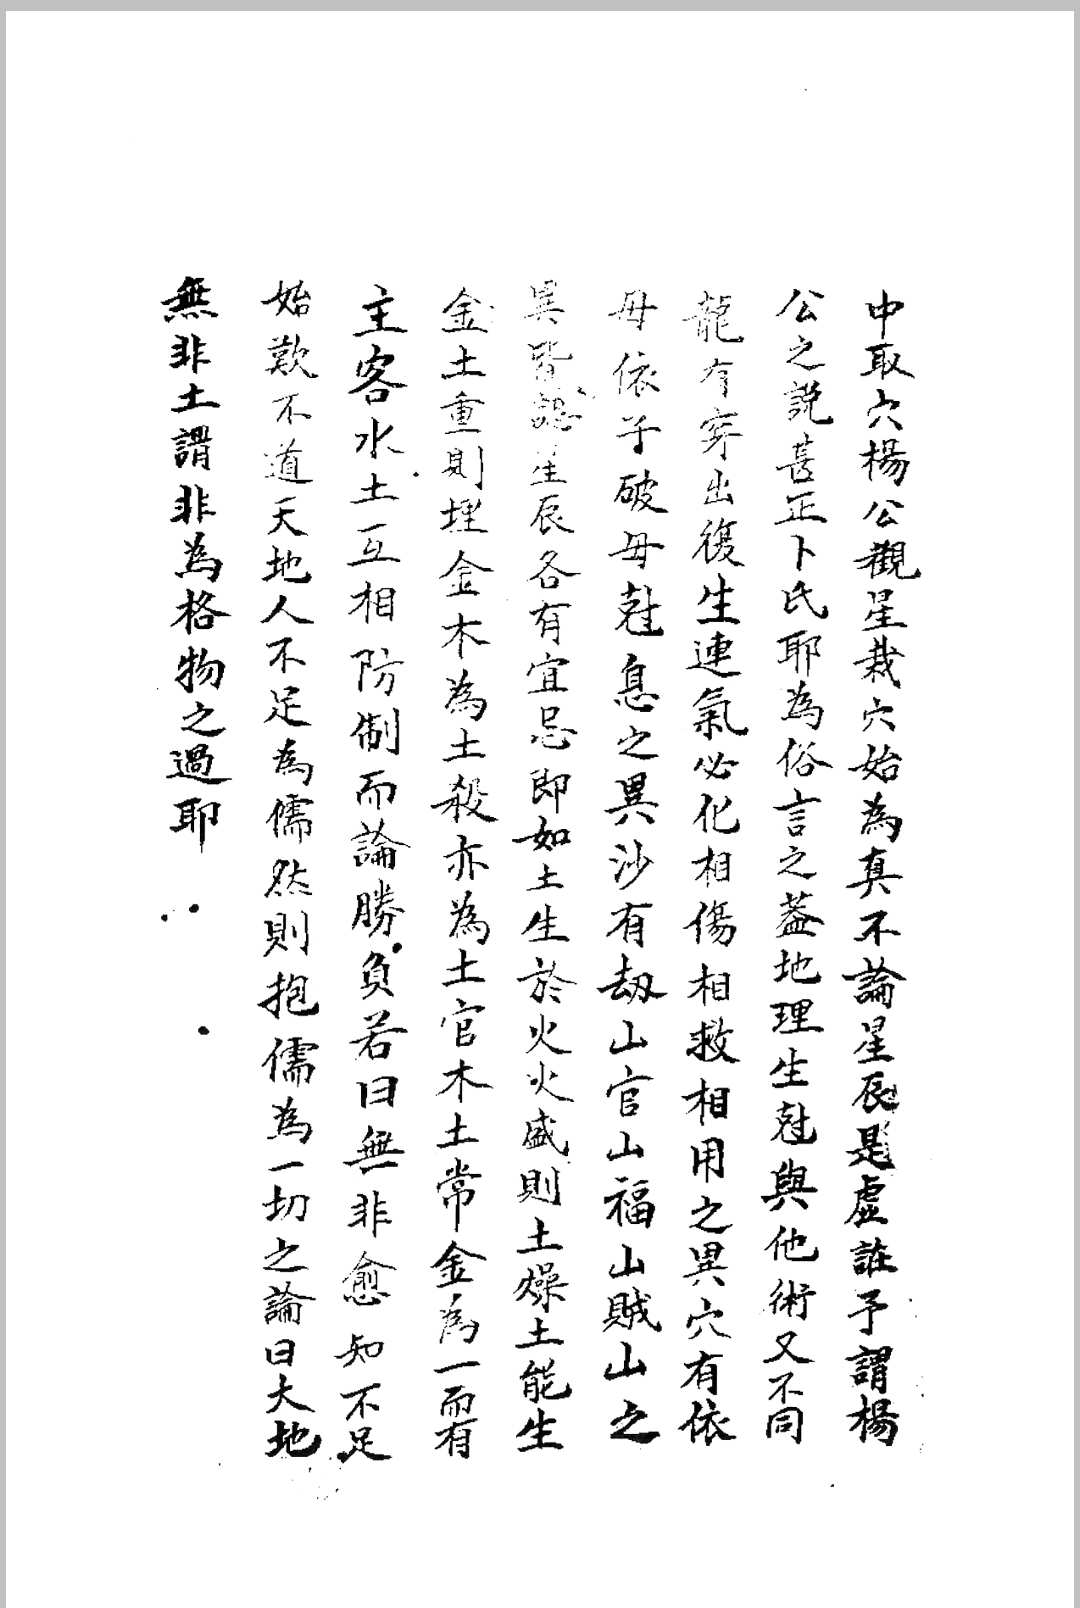 中取穴楊公觀星栽穴始為真不論星辰是虛誑予謂楊
公之説甚正卜氏耶為俗言之葢地理生尅與他術又不同
龍有穿出復生連氣必化相傷相救相用之異穴有依
母依子破母尅息之異沙有劫山官山福山賊山之
異皆認星辰各有宜忌即如土生於火火盛則土燥土能生
金土重則埋金木為土殺亦為土官木土常金為一而有
主客水土互相防制而論勝負若曰無非愈知不足
始歎不道天地人不足為儒然則抱儒為一切之論曰大地
無非土謂非為格物之過耶